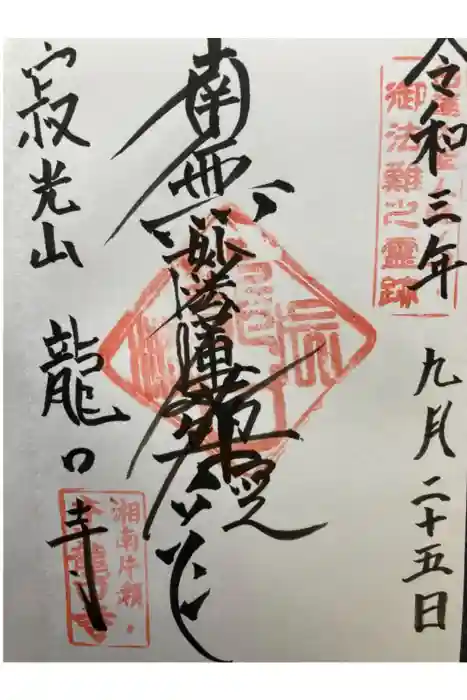 令和三年 九月二十五日
御法難之霊跡
南無妙法蓮華経
寂光山 龍口寺
湘南片瀬・